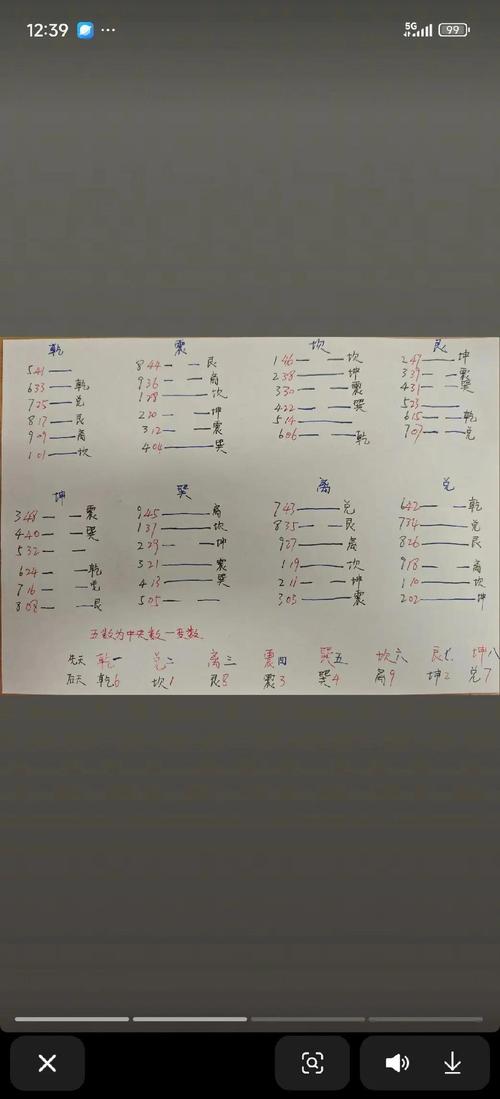 12:39 ... 5G 99
乾 震 坎 艮
541
633 乾
725 兑
817 艮
909 离
101 坎
844 艮
936 离
128 坎
220 坤
312 震
404 巽
146 坎
238 坤
330 震
422 巽
514
606 乾
247 坤
339 震
431 巽
523
615 乾
707 兑
坤 巽 离 兑
348 震
440 巽
532
624 乾
716 兑
808 艮
945 离
137 坎
229 坤
321 震
413 巽
505
743 兑
835 艮
927 离
119 坎
211 坤
303 震
642 乾
734 兑
826 艮
918 离
110 坎
202 坤
五数为中央数一变数
先天 乾一 兑二 离三 震四 巽五 坎六 艮七 坤八
后天 乾6 坎1 艮8 震3 巽4 离9 坤2 兑7